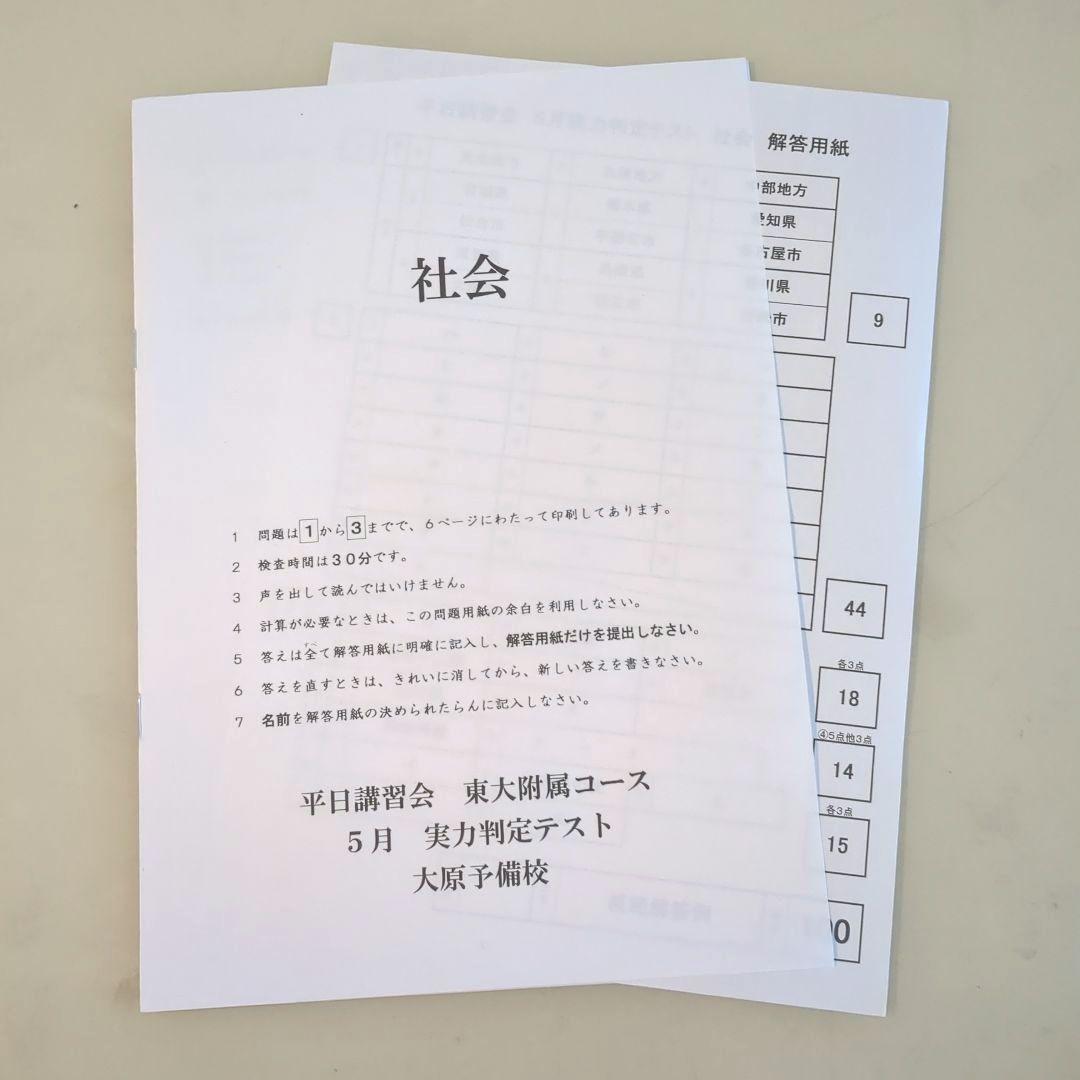 社会
1 問題は1から3までで、6ページにわたって印刷してあります。
2 検査時間は30分です。
3 声を出して読んではいけません。
4 計算が必要なときは、この問題用紙の余白を利用しなさい。
すべ
5 答えは全て解答用紙に明確に記入し、解答用紙だけを提出しなさい。
6 答えを直すときは、きれいに消してから、新しい答えを書きなさい。
7 名前を解答用紙の決められたらんに記入しなさい。
平日講習会 東大附属コース
5月 実力判定テスト
大原予備校
解答用紙
部地方
愛知県
古屋市
川県
市
9
44
各3点
18
④5点他3点
14
各3点
15